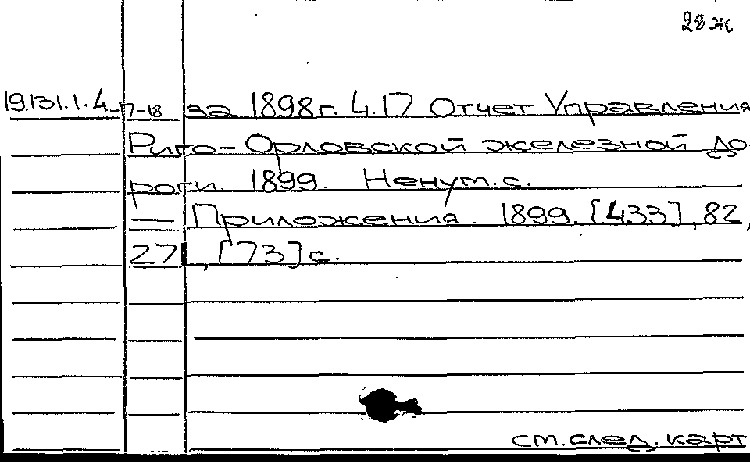 28ж
19.131.1.4_7-18 за 1898г. Ч.17 Отчет Управления
Риго-Орловской железной до
роги. 1899. Ненум.с.
— Приложения. 1899. [433], 82,
271, [73] с.
см. след. карт